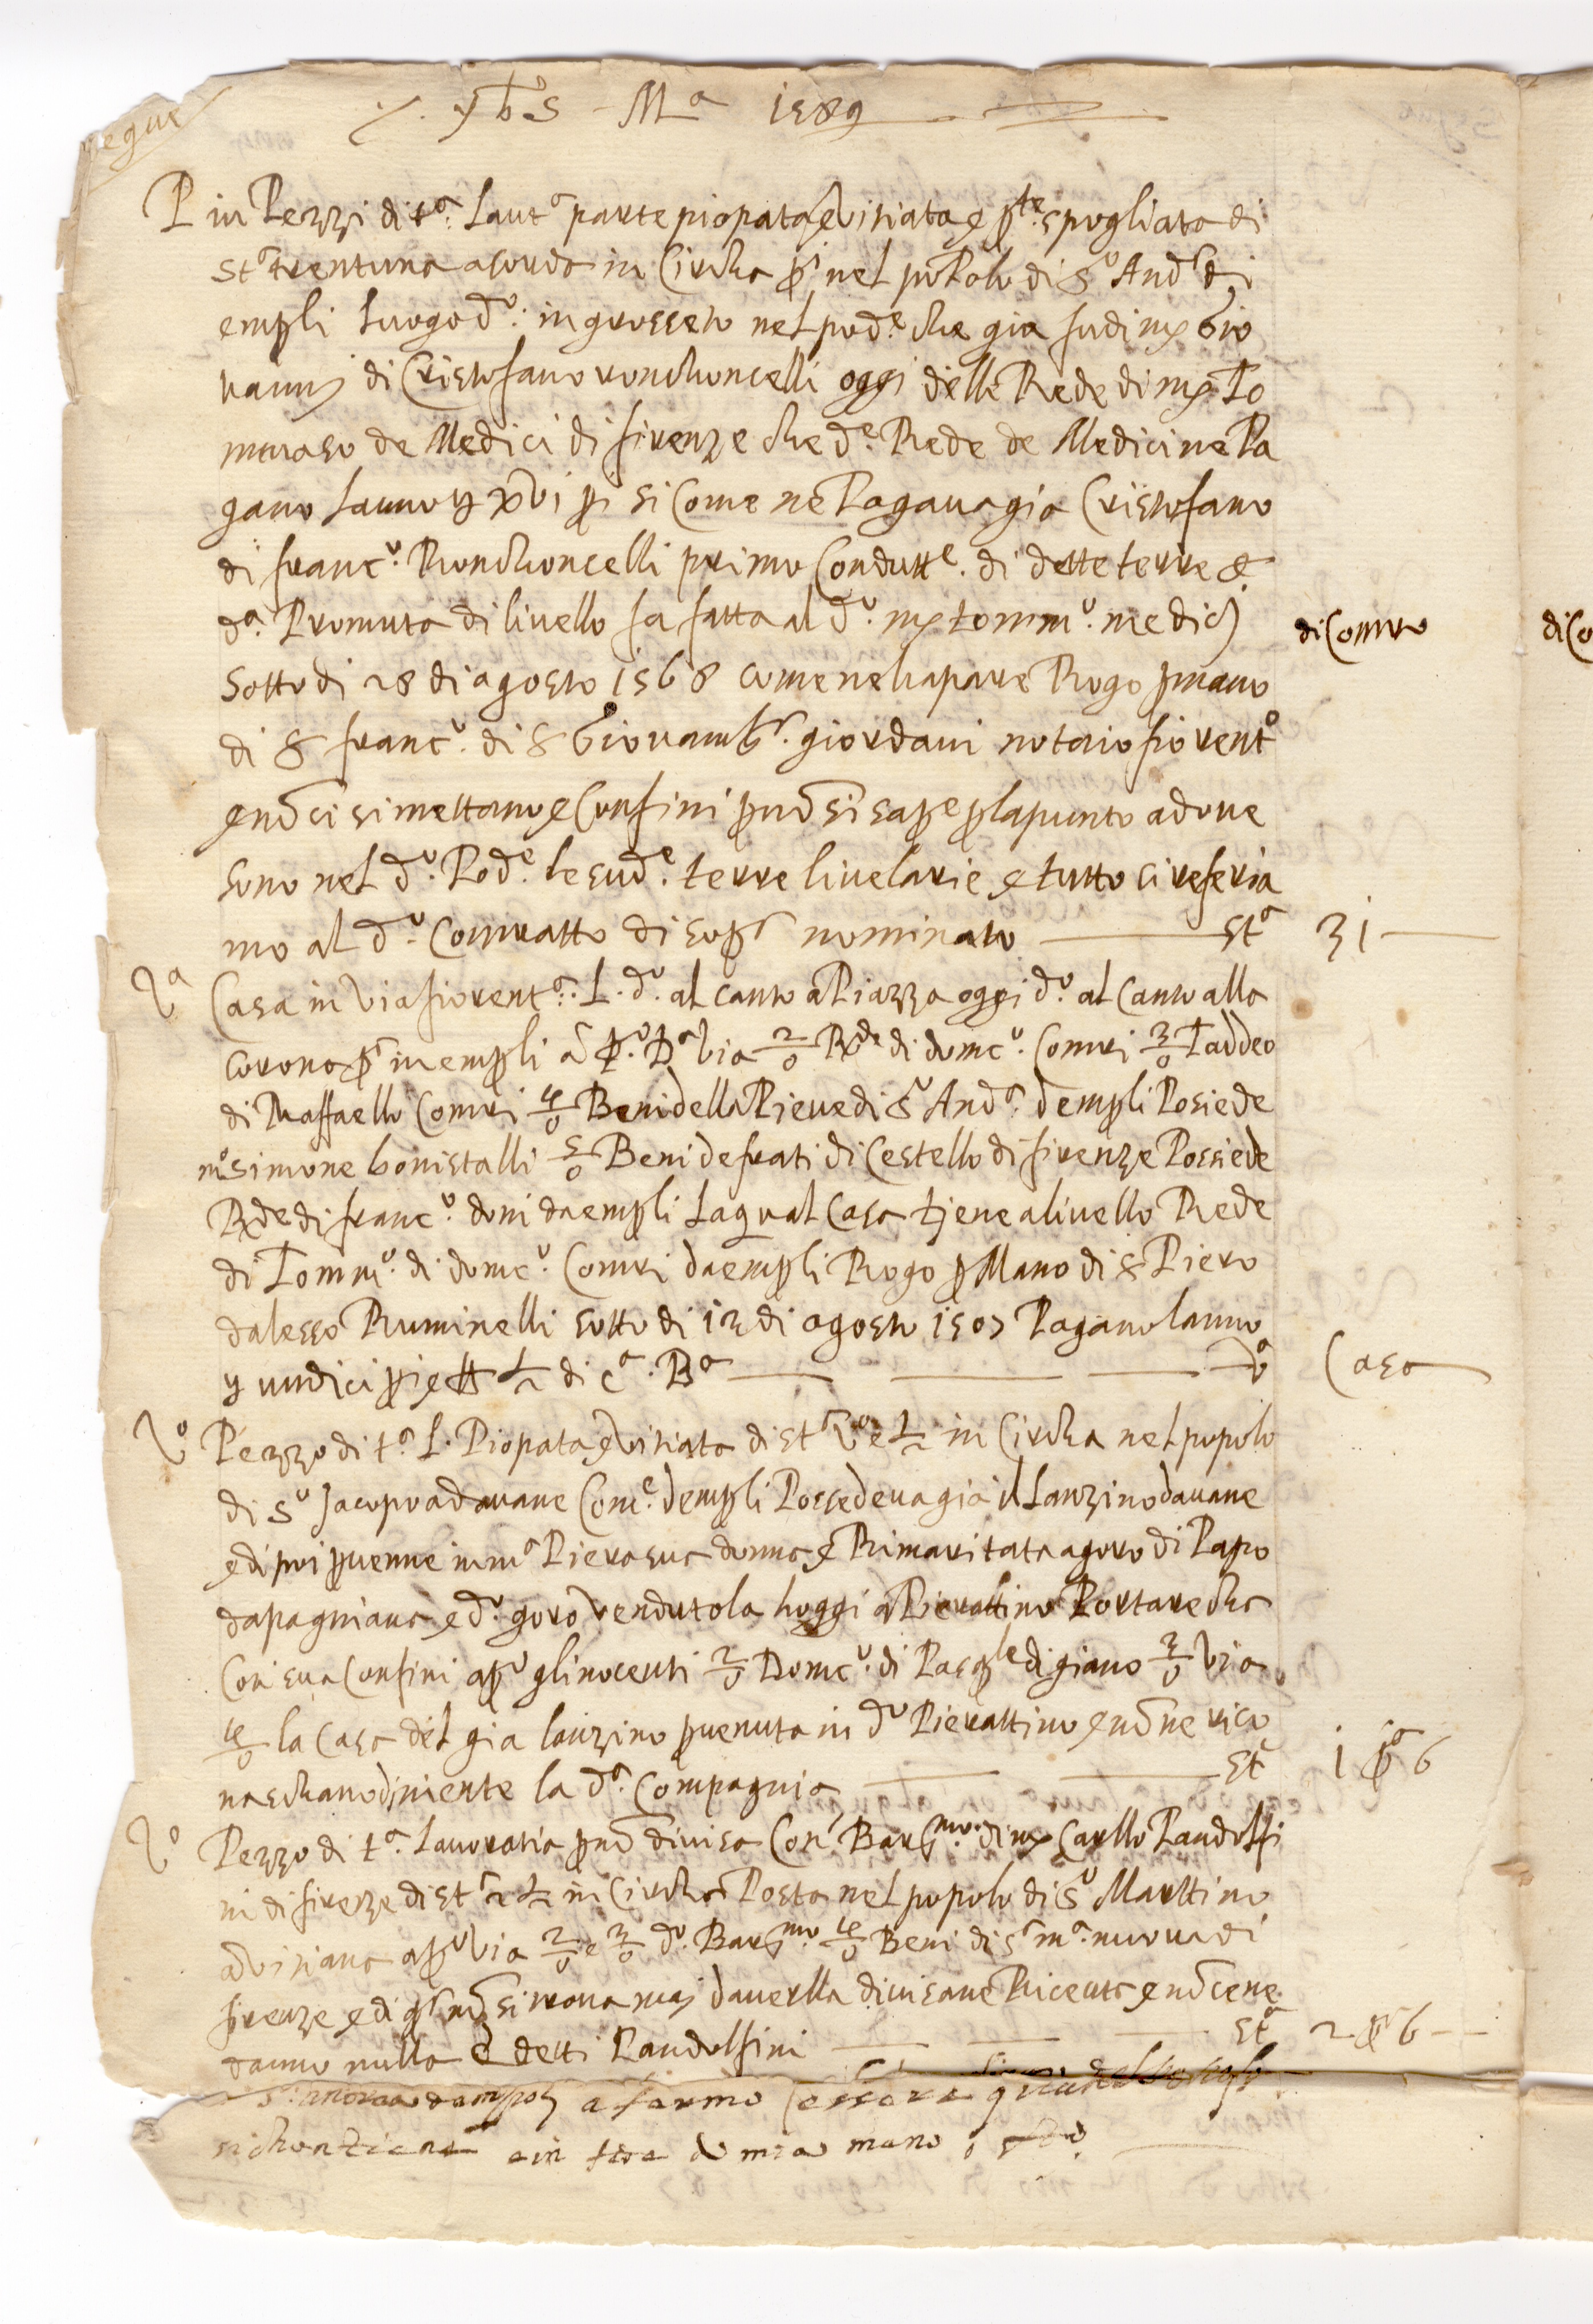 segue
yhs Mᵃ 1589
P in Pezzi di tᵃ. Lautᵃ parte piopata e vitiata e pᵗᵉ. spogliata di
stᵃ trentuna a corda in Circha pⁱ nel popolo di Sᵒ Andᵃ di
empli luogo dᵒ. in grosseto nel podᵉ. che gia fu di mʳ Gio
vannj di Cristofano ronchoncelli oggi delle Rede di mʳ To
mmaso de Medici di firenze che dᵉ. Rede de Medici ne Pa
gano lanno y xvi pⁱ si Come ne Pagava gia Cristofano
di francᵒ. Ronchoncelli primo Conduttᵉ. di dette terre &
dᵃ. Promuta di livello fa fatta al dᵒ. mʳ tommᵒ. medicj
di Contro
Sotto di 28 di agosto 1568 come ne happare Rogo p mano
di S francᵒ. di S Giovambᵃ. giordani notaio fiorentᵒ
e nō ci si mettano e Confini p nō si sapᵉ p lapunto adove
sono nel dᵒ. Podᵉ. le sudᵉ. terre livelarie e tutto ci referia
mo al dᵒ. Contratto di sopᵃ nominato stᵃ 31
Vᵃ Casa in Via fiorentᵃ. L. dᵒ. al canto a Piazza oggi dᵒ. al Canto alla
corona pᵃ in empli a pᵒ. pᵃ via 2/0 Rᵈᵉ di domcᵒ. Contri 3/0 Taddeo
di Raffaello Contri 4/0 Beni della Pieve di Sᵒ Andᵃ. dempli Posiede
mᵒ simone bonistalli 5/0 Beni de frati di Cestello di firenze Possiede
Rᵈᵉ di francᵒ. doni da empli La qual Casa tjene a livello Rede
di Tommᵒ. di domcᵒ. Contri da empli Rogo p Mano di S Piero
dalesso Ruminelli sotto di 13 di agosto 1507 Pagano lanno
y undici pⁱ e ℔ ½ di cᵃ. Bᵃ vᵃ Casa
Vᵒ Pezzo di tᵃ. L. Piopata e vitiata di stᵃ vᵒ e ½ in Circha nel popolo
di Sᵒ Jacopo adavane Comᵉ. dempli Possedeva gia il Lanzino davane
e di poi pvenne in mᵃ Piera sua donna e Rimaritata a goro di Papo
da pagniana e dᵒ. goro vendutola hoggi a Pierattino Portare che
Con sua Confini apᵒ glinocenti 2/0 Domcᵒ. di Pasqˡᵉ di giano 3/0 via
4/0 la Casa del gia lanzino pvenuta in dᵒ Pierattino e nō ne rico
naschano di niente la dᵃ. Compagnia stᵃ 1 pᵃ 6
Vᵒ Pezzo di tᵃ. Lavoratia p nō divisa Con Barᵐᵒ. di mʳ Carllo Pandolfi
ni di firenze di stᵃ 2 ½ in Circha Posta nel popolo di Sᵒ Marttino
a vitiana apᵒ via 2/0 e 3/0 dᵒ. Barᵐᵒ 4/0 Beni di Sᵃ mᵃ. nuova di
firenze e di qᵃ nō si trova maj daverlla divisa ne Riceute e nō cene
danno nulla e detti Pandolfini stᵃ 2 pᵃ 6
da empolj a fermo essere
di mia mano